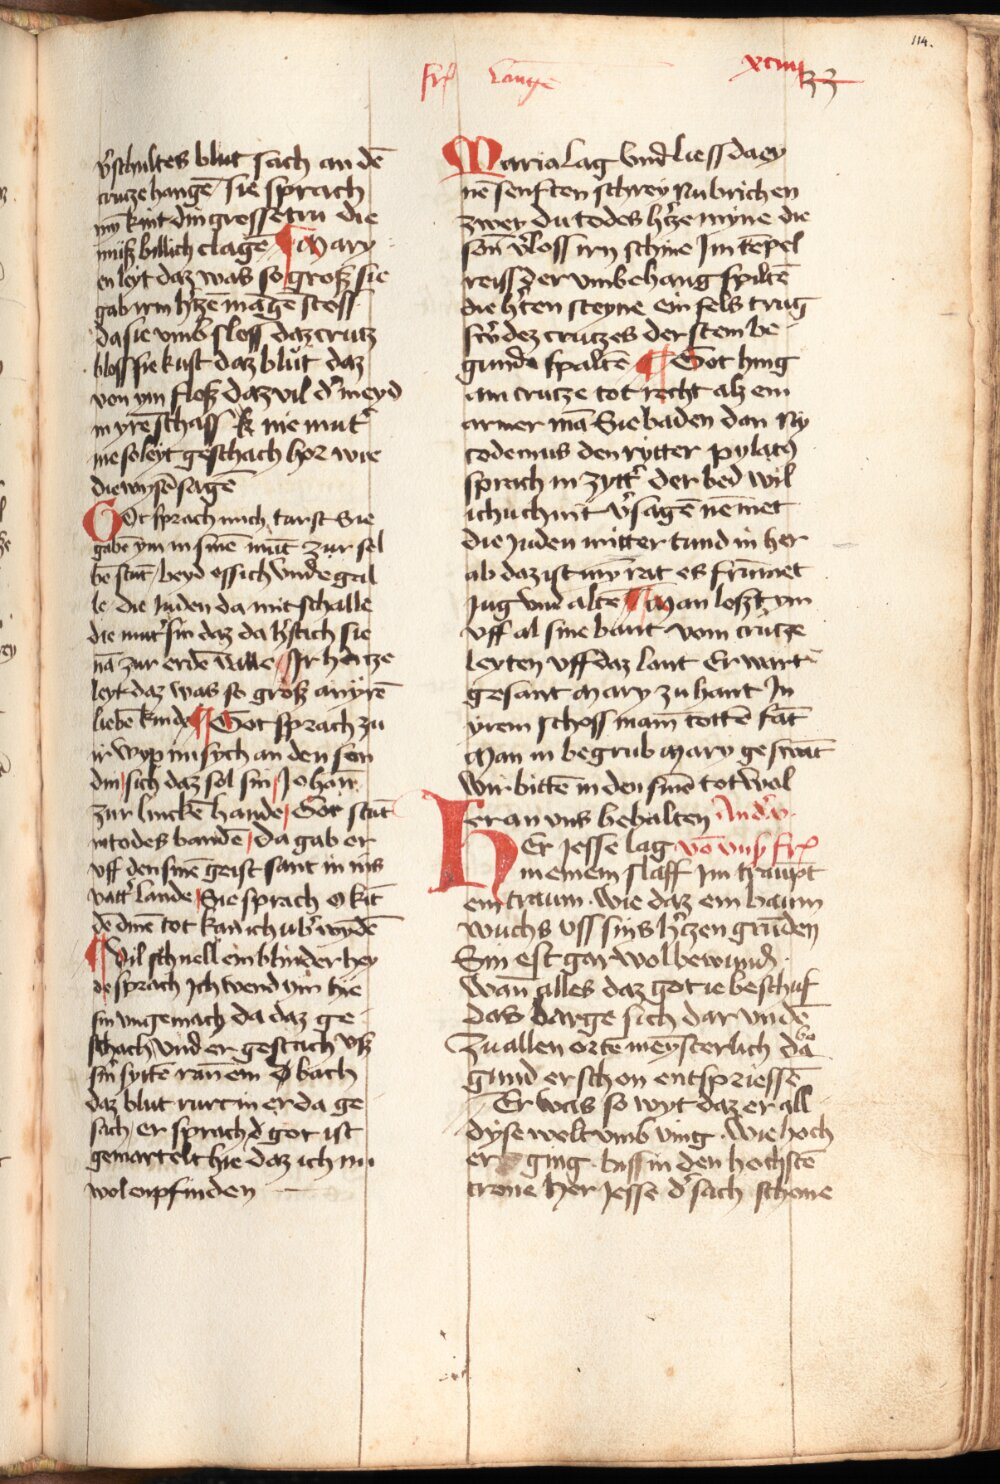 114.
xciiij
33
frͦ lange
vͤschultes blut sach an dē
crutze hangē sie sprach
mȳ kint din grosse tru die
muß billich clagē ¶ Mary
en leyt daz was so groß sie
gab irm hͤtzē māgē stoss
da sie vmb sloss daz crutz
bloss sie kust daz blůt daz
von ym floß daz vil dͤ meyd
in yrē schass k nie mutͤ
me so leyt geschach hor wie
die wysē sagē
Got sprach mich turst Sie
gabē ym in sinē mūt zur sel
bē stūt / beyd essich vnde gal
le die Juden da mit schalle
die mutͤ sin daz da hͤt sich sie
nā zur erdē valle / Jr hertze
leyt daz was so groß an yrē
liebē kinde ¶ Got sprach zu
ir wyp nu sych an den son
din / sich daz sol sin / Johan
zur linckē hande / Got stūt
in todes bandē / da gab er
vff den sinē geist sant in ins
vattͤ lande / Sie sprach o kīt
dē dinē tot kan ich ubͤ wīdē
¶ Vil schnell ein blinder hey
de sprach Ich wend ym hie
sin vngemach da daz ge
schach vnd er gestach vß
sinͤ sytē ran ein bach
daz blut rurt in er da ge
sach / er sprach d got ist
gemartelt hie daz ich nu
wol enpfinden
Maria lag vnd liess da ey
nē senften schrey Nu brich en
zwey du todes hͤtze myne die
son vͤloss irn schine Im tēpel
reiss der vmbehang spiltē
die hͤten steyne ein fels trug
swͤ dez crutzes der stem be
gunde spaltē ¶ Got hing
am crutze tot recht alz ein
armer mā Sie baden dan Ny
codemus den rytter pylatꝰ
sprach in zyttͤ der bed wil
ich uch nit vͤsagē nēmet
die Juden mitter tund in her
ab daz ist mȳ rat es frūmet
Jug vnd altē ¶ Man loszt ym
vff al sine bant vom crutze
leyten vff daz lant Er wart
gesant Mary zu hant In
yrem schoss mam tottē fāt
Man in begrub Mary geswāt
Wir bittē in den sinē tot wol
er an vns behalten And
Her Jesse lag vō vnsͤ frͦ
in einem slaff Im traupt
ein traum · Wie daz ein baum
wuchs vss sins hͤtzen grūden
Sin est gar wol bewundͤ ·
Wan alles daz got ie beschuf
das barge sich dar vndē
Zu allen ortē meysterlich da bo
gund er schon entspriessē
Er was so wyt daz er all
dyse welt vmb ving · Wie hoch
er ging · biss in den hochstē
trone her Jesse dͤ sach schone